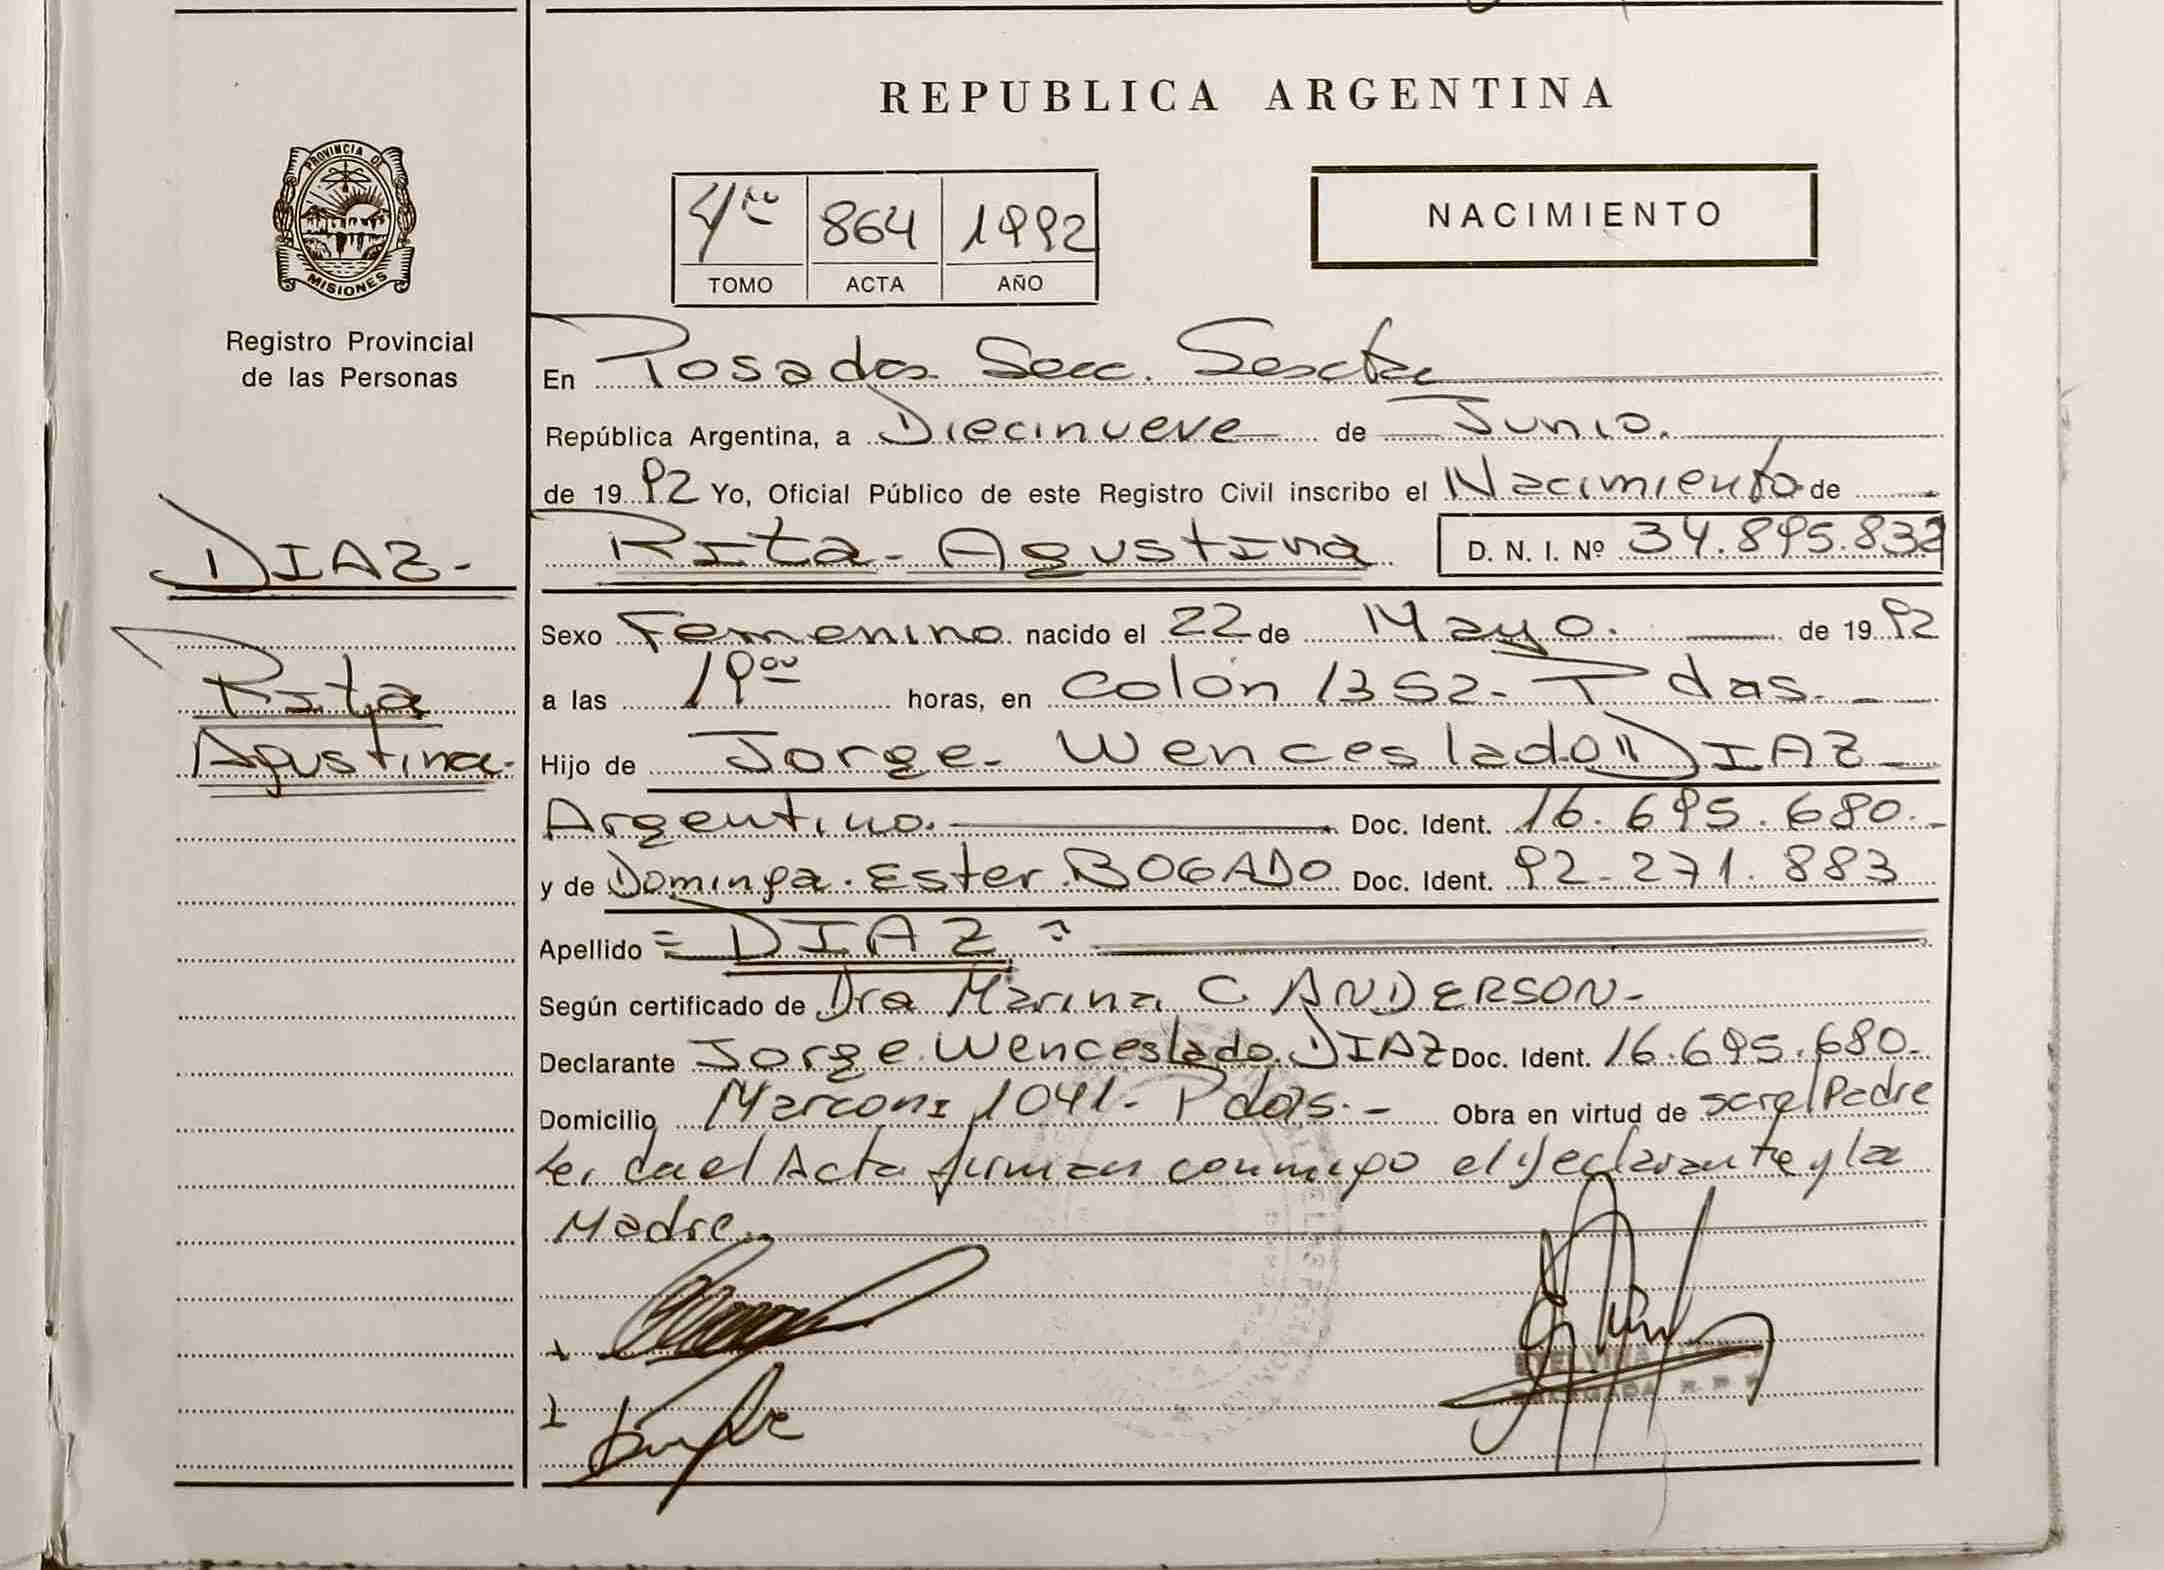 REPUBLICA ARGENTINA
PROVINCIA DE
MISIONES
Registro Provincial
de las Personas
4to 864 1992
TOMO ACTA AÑO
NACIMIENTO
En Posadas Secc. Sexta
República Argentina, a Diecinueve de Junio.
de 1992 Yo, Oficial Público de este Registro Civil inscribo el Nacimiento de
DIAZ-
Rita
Agustina-
Rita- Agustina D. N. I. Nº 34.895.832
Sexo Femenino nacido el 22 de Mayo. de 1992
a las 19 00 horas, en Colón 1352- Pdas.
Hijo de Jorge- Wenceslado DIAZ
Argentino. Doc. Ident. 16.695.680.-
y de Dominga. Ester. BOGADO Doc. Ident. 92-271.883
Apellido = DIAZ =
Según certificado de Dra Marina C. ANDERSON-
Declarante Jorge. Wenceslado. DIAZ Doc. Ident. 16.695.680-
Domicilio Marconi 1041- Pdas.- Obra en virtud de ser el Padre
Leida el Acta firman conmigo el declarante y la
Madre.